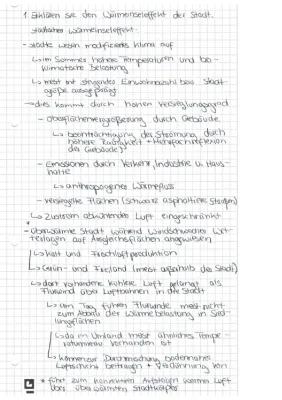 1. Erklären sie den Wärmeinseleffekt der Stadt.
städtischer Wärmeinseleffekt:
- Städte weisen modifiziertes Klima auf
↳ im Sommer höhere Temperaturen und bio-
klimatische Belastung
↳ meist mit steigender Einwohnerzahl bzw. Stadt-
größe ausgeprägt
→ dies kommt durch hohen Versieglungsgrad
- Oberflächenvergrößerung durch Gebäude
↳ beeinträchtigung der Strömung durch
höhere Rauigkeit + Mehrfachreflexion
der Gebäude
- Emissionen durch Verkehr, Industrie u. Haus-
halte
↳ anthropogener Wärmefluss
- versiegelte Flächen (schwarze asphaltierte Straßen)
↳ Zustrom abkühlender Luft eingeschränkt
- überwärmte Stadt während windschwacher Wet-
terlagen auf Ausgleichsflächen angewiesen
↳ Kalt und Frischluftproduktion
↳ Grün- und Freiland (meist außerhalb der Stadt)
↳ dort vorhandene kühlere Luft gelangt als
Flurwind über Luftbahnen in die Stadt
↳ am Tag führen Flurwinde meist nicht
zum Abbau der Wärmebelastung in Sied-
lungsflächen
↳ da im Umland meist ähnliches Tempe-
raturniveau vorhanden ist
↳ können zur Durchmischung bodennaher
Luftschicht beitragen + Verdünnung von
* führt zum konvektiven Aufsteigen warmer Luft
über überwärmten Stadtkörper